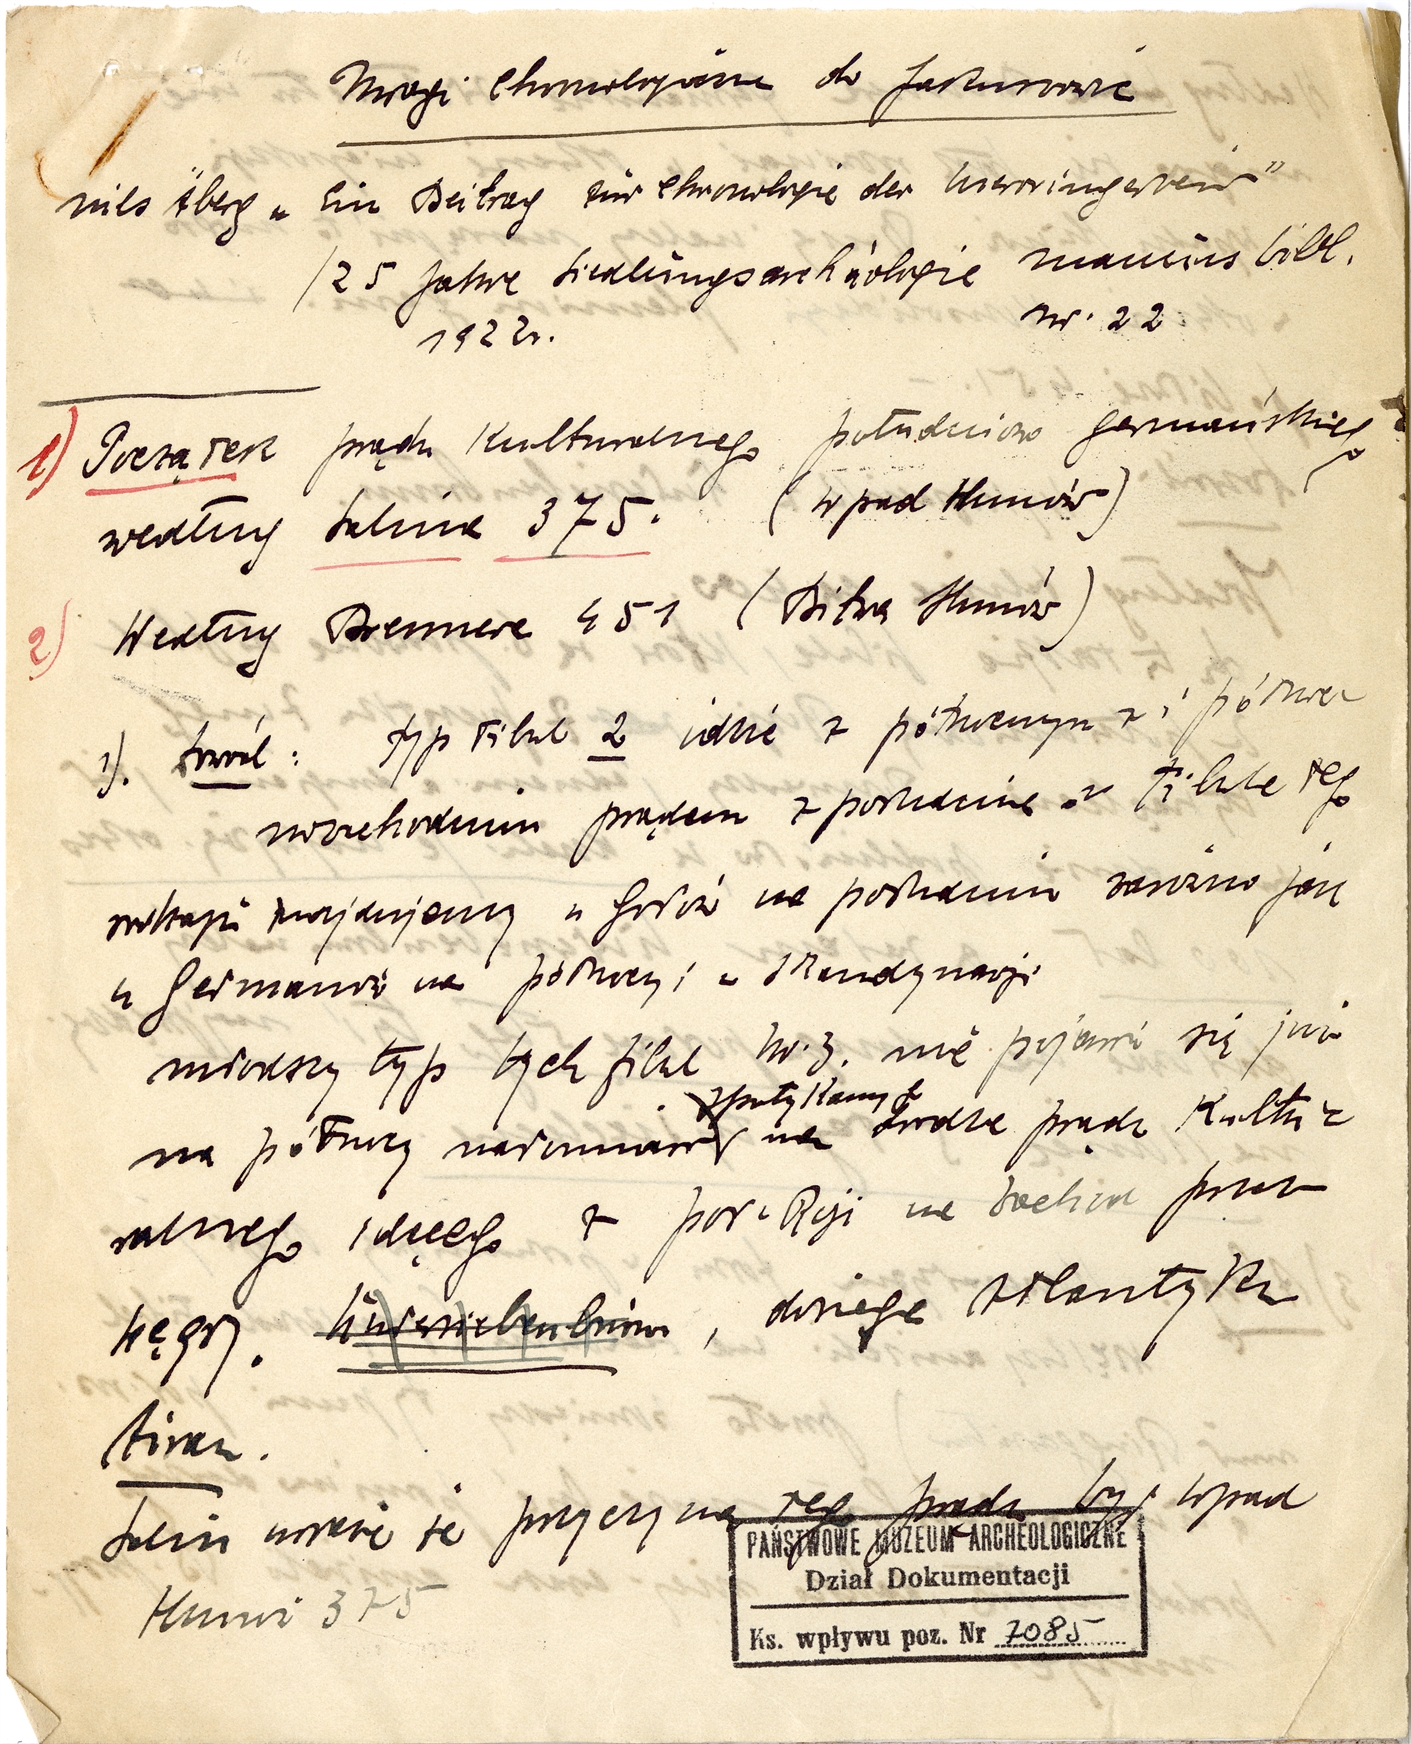 Uwagi chronologiczne do Jakuszowic
Nils Åberg „Ein Beitrag zur Chronologie der Merovingerzeit"
/25 Jahre Siedlungsarchäologie Mannus Bibl.
1922r. nr. 22
1) Początek prądu kulturalnego południowo germańskiego
według Salina 375. (wpad Hunów)
2) Według Brennera 451 (Bitwa Hunów)
1). typ fibul 2 idzie z północnym z i północ
wschodnim prądem z południa
znajdujemy u Gotów na południu zarówno jak
u Germanów na północy i w Skandynawji
młodszy typ tych fibul Nr. 3. nie pojawia się już
na północy natomiast spotykamy na prądu kultu
ralnego idącego z Rosji na zachód przez
Węgry. , dosięga Atlantyku
Salin uważa że przyczyną tego prądu był wpad
Hunów 375
PAŃSTWOWE MUZEUM ARCHEOLOGICZNE
Dział Dokumentacji
Ks. wpływu poz. Nr 7085